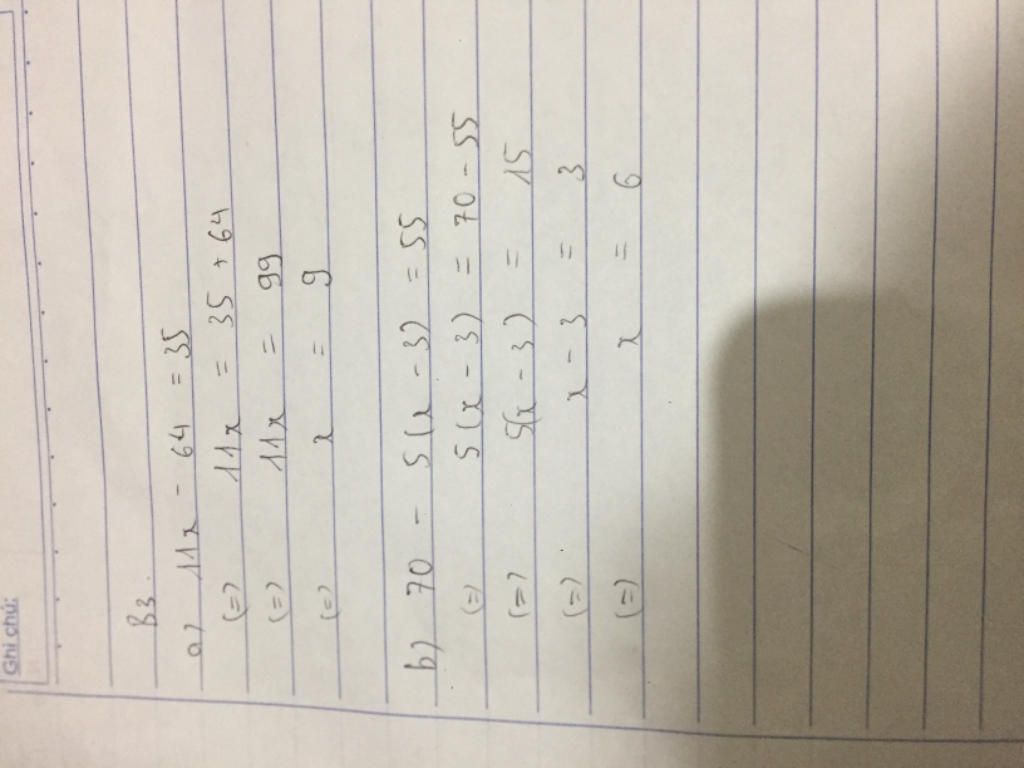 Ghi chú:
B3.
a) 11x - 64 = 35
(=) 11x = 35 + 64
(=) 11x = 99
(=) x = 9
b) 70 - 5(x - 3) = 55
(=) 5(x - 3) = 70 - 55
(=) 5(x - 3) = 15
(=) x - 3 = 3
(=) x = 6